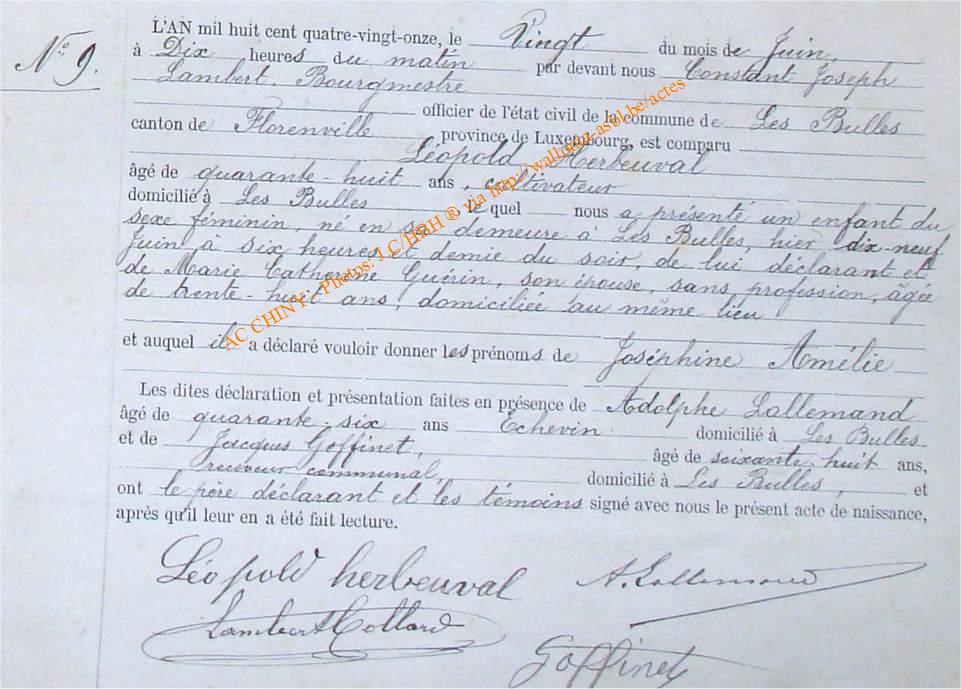 L'AN mil huit cent quatre-vingt-onze, le Vingt du mois de Juin,
N° 9.
à Dix heures du matin par devant nous Constant Joseph
Lambert, Bourgmestre
officier de l'état civil de la commune de Les Bulles
canton de Florenville province de Luxembourg, est comparu
Léopold Herbeuval
âgé de quarante-huit ans, cultivateur
domicilié à Les Bulles le quel nous a présenté un enfant du
sexe féminin, né en sa demeure à Les Bulles, hier dix-neuf
Juin à six heures et demie du soir, de lui déclarant et
de Marie Catherine Guérin, son épouse, sans profession, âgée
de trente-huit ans, domiciliée au même lieu
et auquel il a déclaré vouloir donner les prénoms de Joséphine Amélie
Les dites déclaration et présentation faites en présence de Adolphe Lallemand
âgé de quarante six ans Echevin domicilié à Les Bulles
et de Jacques Goffinet, âgé de soixante-huit ans,
receveur communal, domicilié à Les Bulles, et
ont le père déclarant et les témoins signé avec nous le présent acte de naissance,
après qu'il leur en a été fait lecture.
Léopold herbeuval A. Lallemand
Lambert Collard
Goffinet
AC CHINY - Photos: J.C/HBH ® via http://wallonia-asbl.be/actes